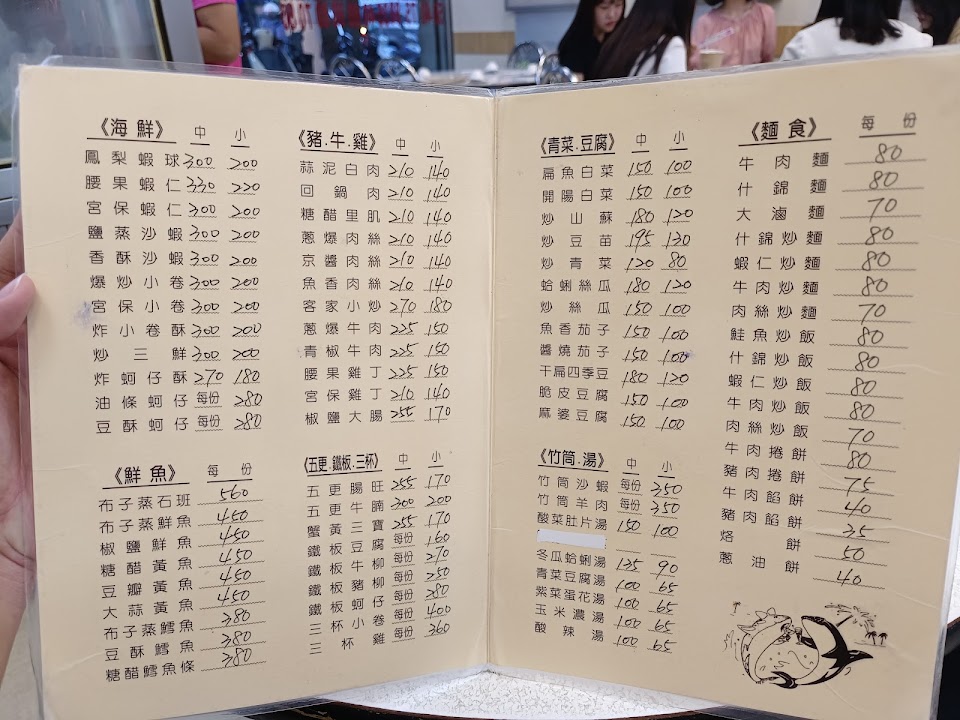 《海鮮》 中 小
鳳梨蝦球 300 200
腰果蝦仁 330 220
宮保蝦仁 300 200
鹽蒸沙蝦 300 200
香酥沙蝦 300 200
爆炒小卷 300 200
宮保小卷 300 200
炸小卷酥 300 200
炒三鮮 300 200
炸蚵仔酥 270 180
油條蚵仔 每份 280
豆酥蚵仔 每份 280
《鮮魚》 每份
布子蒸石斑 560
布子蒸鮮魚 450
椒鹽鮮魚 450
糖醋黃魚 450
豆瓣黃魚 450
大蒜黃魚 450
布子蒸鱈魚 380
豆酥鱈魚 380
糖醋鱈魚條 380
《豬.牛.雞》 中 小
蒜泥白肉 210 140
回鍋肉 210 140
糖醋里肌 210 140
蔥爆肉絲 210 140
京醬肉絲 210 140
魚香肉絲 210 140
客家小炒 270 180
蔥爆牛肉 225 150
青椒牛肉 225 150
腰果雞丁 225 150
宮保雞丁 210 140
椒鹽大腸 255 170
《五更.鐵板.三杯》 中 小
五更腸旺 255 170
五更牛腩 300 200
蟹黃三寶 255 170
鐵板豆腐 每份 160
鐵板牛柳 每份 270
鐵板豬柳 每份 250
鐵板蚵仔 每份 280
三杯小卷 每份 400
三杯雞 每份 360
《青菜.豆腐》 中 小
扁魚白菜 150 100
開陽白菜 150 100
炒山蘇 180 120
炒豆苗 195 130
炒青菜 120 80
蛤蜊絲瓜 180 120
炒絲瓜 150 100
魚香茄子 150 100
醬燒茄子 150 100
干扁四季豆 180 120
脆皮豆腐 150 100
麻婆豆腐 150 100
《竹筒.湯》 中 小
竹筒沙蝦 每份 350
竹筒羊肉 每份 350
酸菜肚片湯 150 100
冬瓜蛤蜊湯 135 90
青菜豆腐湯 100 65
紫菜蛋花湯 100 65
玉米濃湯 100 65
酸辣湯 100 65
《麵食》 每份
牛肉麵 80
什錦麵 80
大滷麵 70
什錦炒麵 80
蝦仁炒麵 80
牛肉炒麵 80
肉絲炒麵 70
鮭魚炒飯 80
什錦炒飯 80
蝦仁炒飯 80
牛肉炒飯 80
肉絲炒飯 70
牛肉捲餅 80
豬肉捲餅 75
牛肉餡餅 40
豬肉餡餅 35
烙餅 50
蔥油餅 40